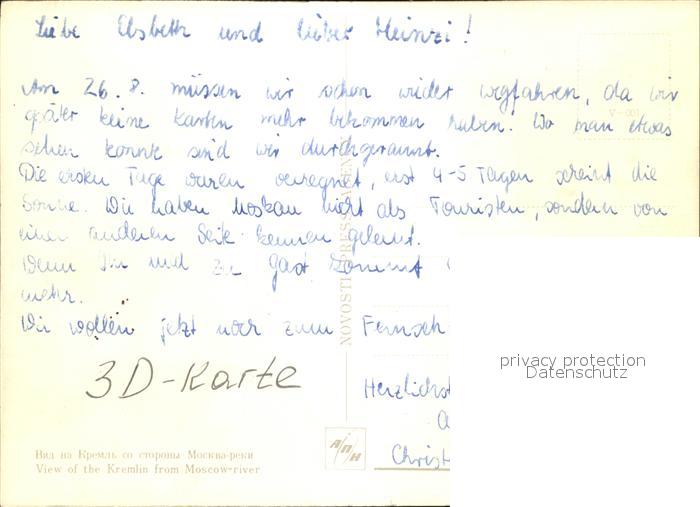 Liebe Elsbeth und lieber Heinzi!
Am 26. 8. müssen wir schon wider wegfahren, da wir
später keine Karten mehr bekommen haben. Wo man etwas
sehen konnte sind wir durchgerannt.
Die ersten Tage waren verregnet, erst 4-5 Tagen scheint die
Sonne. Wir haben Moskau nicht als Touristen, sondern von
einer anderen Seite kennen gelernt.
Wenn und zu Gast kommt
mehr.
Wir wollen jetzt noch zum Fernseh
3D-Karte
Herzlichst
Christ
NOVOSTI PRESS AGENCY
АПН
Вид на Кремль со стороны Москва-реки
View of the Kremlin from Moscow-river
privacy protection
Datenschutz